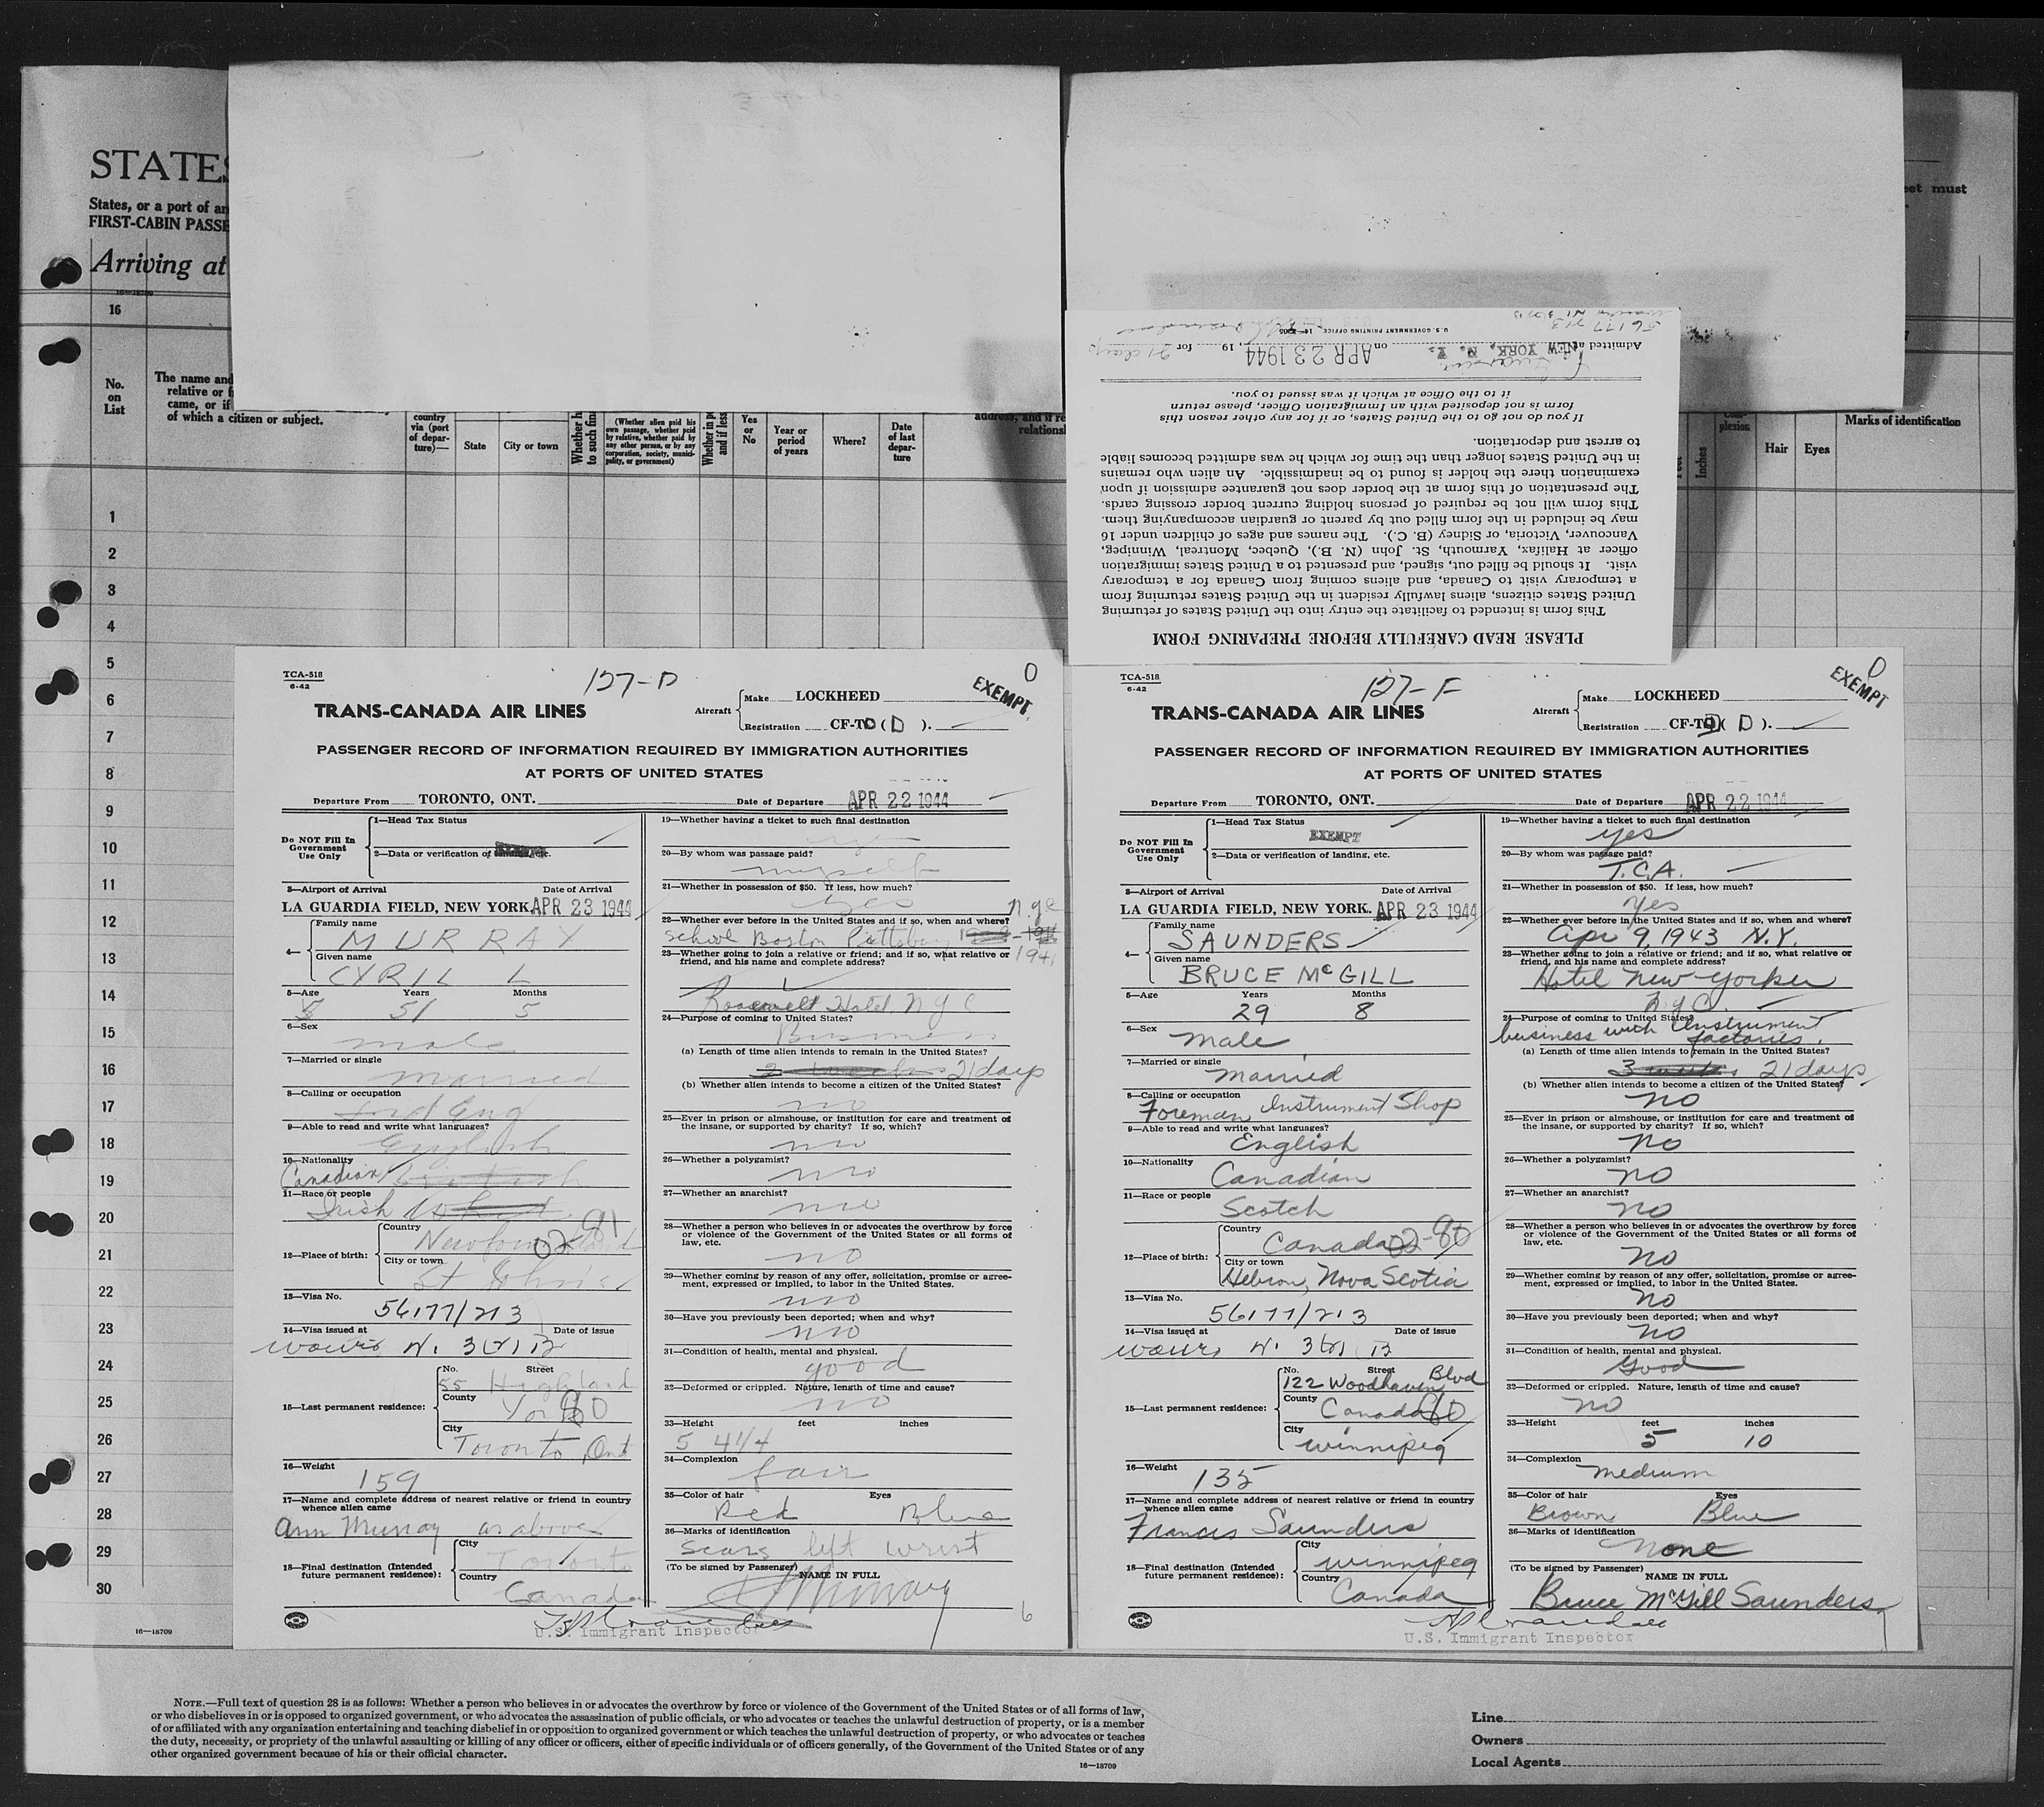 STATES
States, or a port of an
FIRST-CABIN PASSE
Arriving at
must
16—18709
16
No.
on
List
The name and
relative or f
came, or if
of which a citizen or subject.
country
via (port
of depar-
ture)—
State
City or town
Whether h
to such fina
(Whether alien paid his
own passage, whether paid
by relative, whether paid by
any other person, or by any
corporation, society, munici-
pality, or government)
Whether in p
and if less
Yes
or
No
Year or
period
of years
Where?
Date
of last
depar-
ture
address, and if re
relations
Inches
Com-
plexion
Hair
Eyes
Marks of identification
1
2
3
4
5
6
7
8
9
10
11
12
13
14
15
16
17
18
19
20
21
22
23
24
25
26
27
28
29
30
16—18709
PLEASE READ CAREFULLY BEFORE PREPARING FORM
This form is intended to facilitate the entry into the United States of returning
United States citizens, aliens lawfully resident in the United States returning from
a temporary visit to Canada, and aliens coming from Canada for a temporary
visit. It should be filled out, signed, and presented to a United States immigration
officer at Halifax, Yarmouth, St. John (N. B.), Quebec, Montreal, Winnipeg,
Vancouver, Victoria, or Sidney (B. C.). The names and ages of children under 16
may be included in the form filled out by parent or guardian accompanying them.
This form will not be required of persons holding current border crossing cards.
The presentation of this form at the border does not guarantee admission if upon
examination there the holder is found to be inadmissible. An alien who remains
in the United States longer than the time for which he was admitted becomes liable
to arrest and deportation.
If you do not go to the United States, or if for any other reason this
form is not deposited with an Immigration Officer, please return
it to the Office at which it was issued to you.
Admitted at NEW YORK, N. Y. on APR 23 1944, 19 for 21 days
56177/213
U.S. GOVERNMENT PRINTING OFFICE
TCA-518
6-42
127-D
0
EXEMPT
TRANS-CANADA AIR LINES
Aircraft
Make LOCKHEED
Registration CF-TC (D).
PASSENGER RECORD OF INFORMATION REQUIRED BY IMMIGRATION AUTHORITIES
AT PORTS OF UNITED STATES
Departure From TORONTO, ONT.
Date of Departure APR 22 1944
Do NOT Fill In
Government
Use Only
1—Head Tax Status
2—Data or verification of landing, etc.
3—Airport of Arrival Date of Arrival
LA GUARDIA FIELD, NEW YORK. APR 23 1944
4—
Family name
MURRAY
Given name
CYRIL L
5—Age Years Months
51 5
6—Sex
male
7—Married or single
married
8—Calling or occupation
Ind Eng
9—Able to read and write what languages?
English
10—Nationality
Canadian British
11—Race or people
Irish White
12—Place of birth:
Country
Newfoundland 02-91
City or town
St Johns
13—Visa No.
56177/213
14—Visa issued at Date of issue
15—Last permanent residence:
No. Street
55 Highland
County
York 80
City
Toronto, Ont
16—Weight
159
17—Name and complete address of nearest relative or friend in country
whence alien came
Ann Murray as above
18—Final destination (Intended
future permanent residence):
City
Toronto
Country
Canada
19—Whether having a ticket to such final destination
20—By whom was passage paid?
myself
21—Whether in possession of $50. If less, how much?
yes
22—Whether ever before in the United States and if so, when and where?
N.Y.C
School Boston Pittsburg 1941
23—Whether going to join a relative or friend; and if so, what relative or
friend, and his name and complete address?
Roosevelt Hotel N Y C
24—Purpose of coming to United States?
Business
(a) Length of time alien intends to remain in the United States?
21 days
(b) Whether alien intends to become a citizen of the United States?
no
25—Ever in prison or almshouse, or institution for care and treatment of
the insane, or supported by charity? If so, which?
no
26—Whether a polygamist?
no
27—Whether an anarchist?
no
28—Whether a person who believes in or advocates the overthrow by force
or violence of the Government of the United States or all forms of
law, etc.
no
29—Whether coming by reason of any offer, solicitation, promise or agree-
ment, expressed or implied, to labor in the United States.
no
30—Have you previously been deported; when and why?
no
31—Condition of health, mental and physical.
good
32—Deformed or crippled. Nature, length of time and cause?
no
33—Height feet inches
5 4 1/4
34—Complexion
fair
35—Color of hair Eyes
Red Blue
36—Marks of identification
Scars left wrist
(To be signed by Passenger) NAME IN FULL
Murray
6
U.S. Immigrant Inspector
TCA-518
6-42
127-F
0
EXEMPT
TRANS-CANADA AIR LINES
Aircraft
Make LOCKHEED
Registration CF-T (D).
PASSENGER RECORD OF INFORMATION REQUIRED BY IMMIGRATION AUTHORITIES
AT PORTS OF UNITED STATES
Departure From TORONTO, ONT.
Date of Departure APR 22 1944
Do NOT Fill In
Government
Use Only
1—Head Tax Status
EXEMPT
2—Data or verification of landing, etc.
3—Airport of Arrival Date of Arrival
LA GUARDIA FIELD, NEW YORK. APR 23 1944
4—
Family name
SAUNDERS
Given name
BRUCE McGILL
5—Age Years Months
29 8
6—Sex
Male
7—Married or single
Married
8—Calling or occupation
Foreman Instrument Shop
9—Able to read and write what languages?
English
10—Nationality
Canadian
11—Race or people
Scotch
12—Place of birth:
Country
Canada 02-80
City or town
Hebron, Nova Scotia
13—Visa No.
56177/213
14—Visa issued at Date of issue
15—Last permanent residence:
No. Street
122 Woodhaven Blvd
County
Canada 80
City
Winnipeg
16—Weight
135
17—Name and complete address of nearest relative or friend in country
whence alien came
Francis Saunders
18—Final destination (Intended
future permanent residence):
City
Winnipeg
Country
Canada
19—Whether having a ticket to such final destination
yes
20—By whom was passage paid?
T.C.A.
21—Whether in possession of $50. If less, how much?
Yes
22—Whether ever before in the United States and if so, when and where?
Apr 9, 1943 N.Y.
23—Whether going to join a relative or friend; and if so, what relative or
friend, and his name and complete address?
Hotel New Yorker
N.Y.C.
24—Purpose of coming to United States?
business with Instrument
factories.
(a) Length of time alien intends to remain in the United States?
3 weeks. 21 days
(b) Whether alien intends to become a citizen of the United States?
no
25—Ever in prison or almshouse, or institution for care and treatment of
the insane, or supported by charity? If so, which?
no
26—Whether a polygamist?
no
27—Whether an anarchist?
no
28—Whether a person who believes in or advocates the overthrow by force
or violence of the Government of the United States or all forms of
law, etc.
no
29—Whether coming by reason of any offer, solicitation, promise or agree-
ment, expressed or implied, to labor in the United States.
no
30—Have you previously been deported; when and why?
no
31—Condition of health, mental and physical.
Good
32—Deformed or crippled. Nature, length of time and cause?
no
33—Height feet inches
5 10
34—Complexion
medium
35—Color of hair Eyes
Brown Blue
36—Marks of identification
none
(To be signed by Passenger) NAME IN FULL
Bruce McGill Saunders
U.S. Immigrant Inspector
NOTE.—Full text of question 28 is as follows: Whether a person who believes in or advocates the overthrow by force or violence of the Government of the United States or of all forms of law,
or who disbelieves in or is opposed to organized government, or who advocates the assassination of public officials, or who advocates or teaches the unlawful destruction of property, or is a member
of or affiliated with any organization entertaining and teaching disbelief in or opposition to organized government or which teaches the unlawful destruction of property, or who advocates or teaches
the duty, necessity, or propriety of the unlawful assaulting or killing of any officer or officers, either of specific individuals or of officers generally, of the Government of the United States or of any
other organized government because of his or their official character.
16—18709
Line
Owners
Local Agents